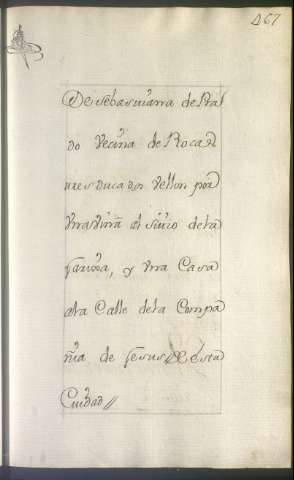 467
De sebasttiana de Ral
do Vecina de Roca
tres ducados Vellon por
Una Viña al sittio de la
farina, y Una Casa
a la Calle de la Compa
ñia de Jesus de esta
Ciudad //